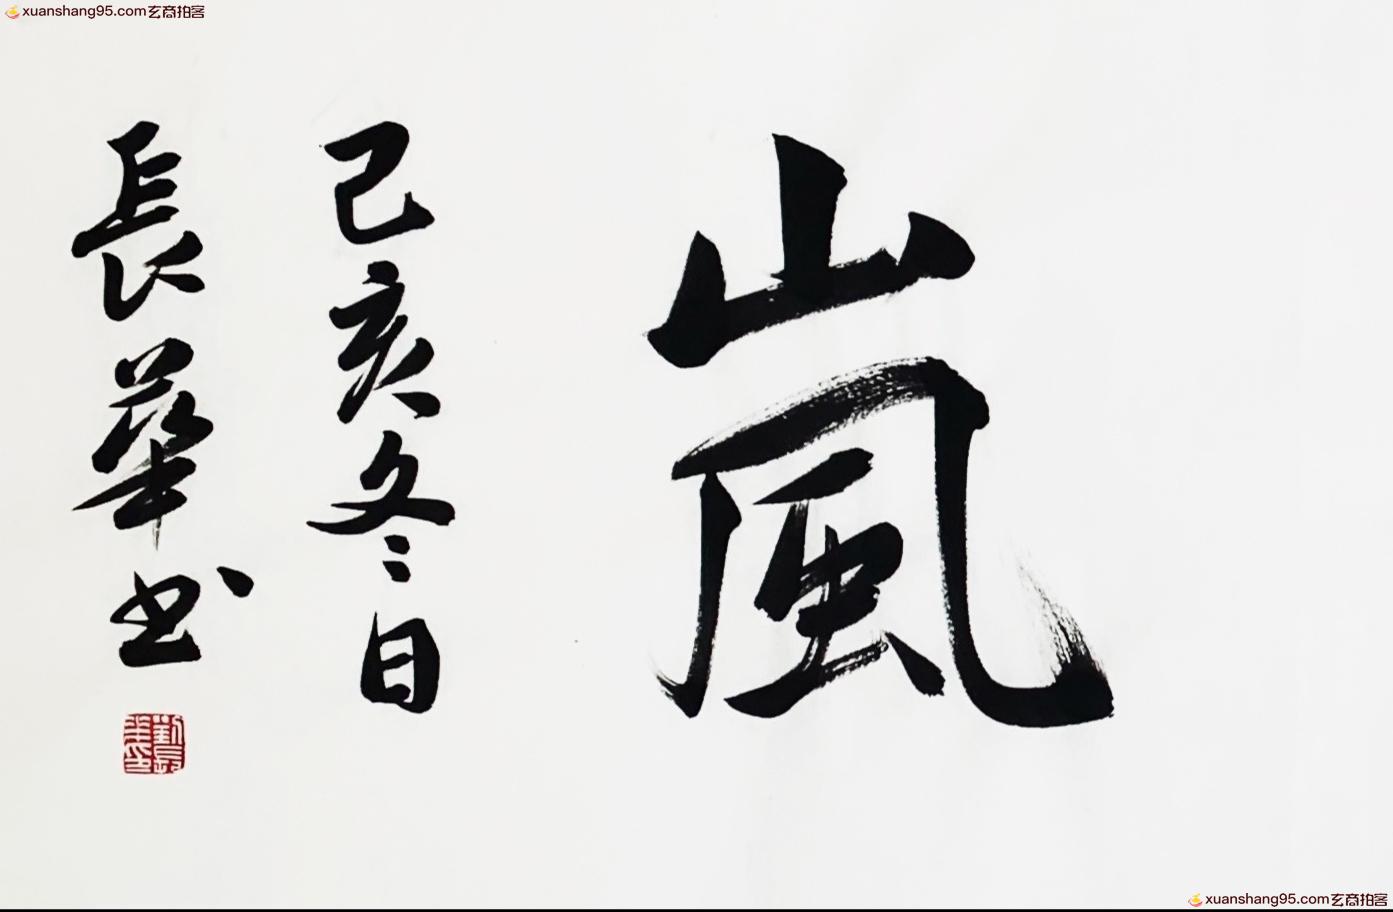 xuanshang95.com玄商拍客
嵐
己亥冬日
長華书
xuanshang95.com玄商拍客